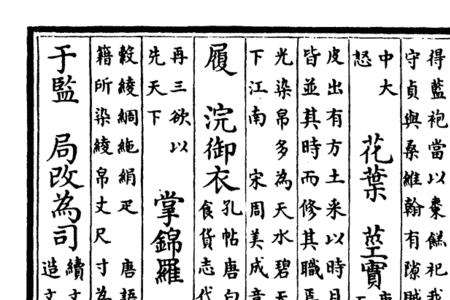 得藍袍當以棗餻祀我
守貞與桑維翰有隙賊
中大
怒
花葉 莖實
皮出有方土釆以時日
皆並其時而修其職焉
光染帛多為天水碧天
下江南 宋周美成
履 浣御衣
孔帖唐白
食貨志代
再三欲以
先天下
掌錦羅
縠綾綢絁絹疋 唐語
籍所染綾帛丈尺寸為
于監 局改為司
續文
造文